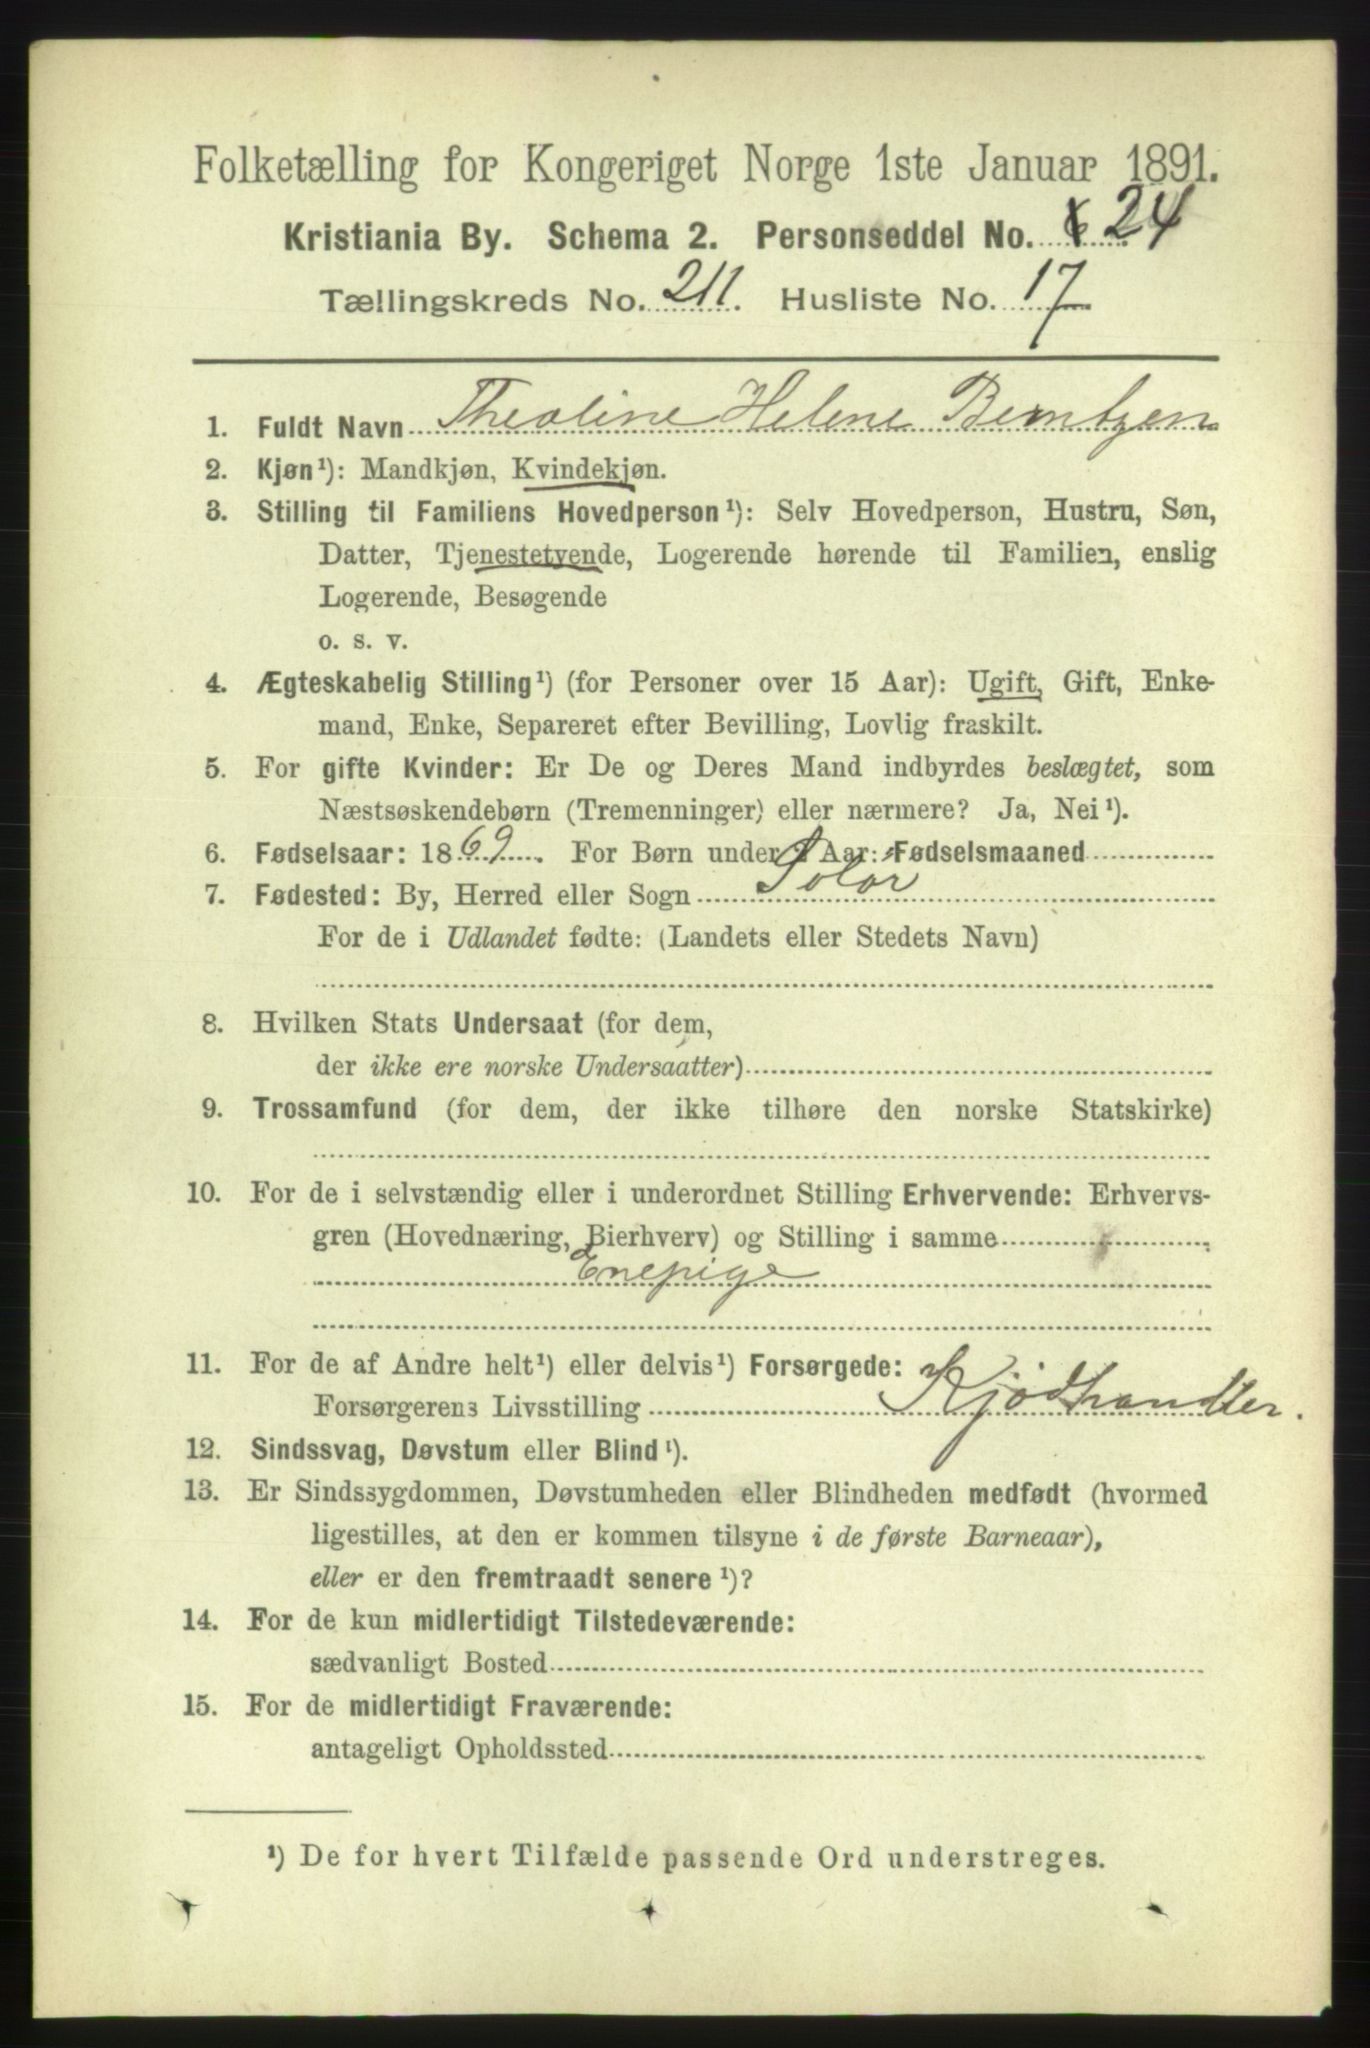 Folketælling for Kongeriget Norge 1ste Januar 1891.
Kristiania By. Schema 2. Personseddel No. 6 24
Tællingskreds No. 211. Husliste No. 17
1. Fuldt Navn Theoline Helene Berntzen
2. Kjøn¹): Mandkjøn, Kvindekjøn.
3. Stilling til Familiens Hovedperson¹): Selv Hovedperson, Hustru, Søn,
Datter, Tjenestetyende, Logerende hørende til Familien, enslig
Logerende, Besøgende
o. s. v.
4. Ægteskabelig Stilling¹) (for Personer over 15 Aar): Ugift, Gift, Enke-
mand, Enke, Separeret efter Bevilling, Lovlig fraskilt.
5. For gifte Kvinder: Er De og Deres Mand indbyrdes beslægtet, som
Næstsøskendebørn (Tremenninger) eller nærmere? Ja, Nei¹).
6. Fødselsaar: 1869. For Børn under Aar: Fødselsmaaned
7. Fødested: By, Herred eller Sogn Solør
For de i Udlandet fødte: (Landets eller Stedets Navn)
8. Hvilken Stats Undersaat (for dem,
der ikke ere norske Undersaatter)
9. Trossamfund (for dem, der ikke tilhøre den norske Statskirke)
10. For de i selvstændig eller i underordnet Stilling Erhvervende: Erhvervs-
gren (Hovednæring, Bierhverv) og Stilling i samme
Enepige
11. For de af Andre helt¹) eller delvis¹) Forsørgede:
Forsørgerens Livsstilling Kjødhandler.
12. Sindssvag, Døvstum eller Blind¹).
13. Er Sindssygdommen, Døvstumheden eller Blindheden medfødt (hvormed
ligestilles, at den er kommen tilsyne i de første Barneaar),
eller er den fremtraadt senere¹)?
14. For de kun midlertidigt Tilstedeværende:
sædvanligt Bosted
15. For de midlertidigt Fraværende:
antageligt Opholdssted
¹) De for hvert Tilfælde passende Ord understreges.